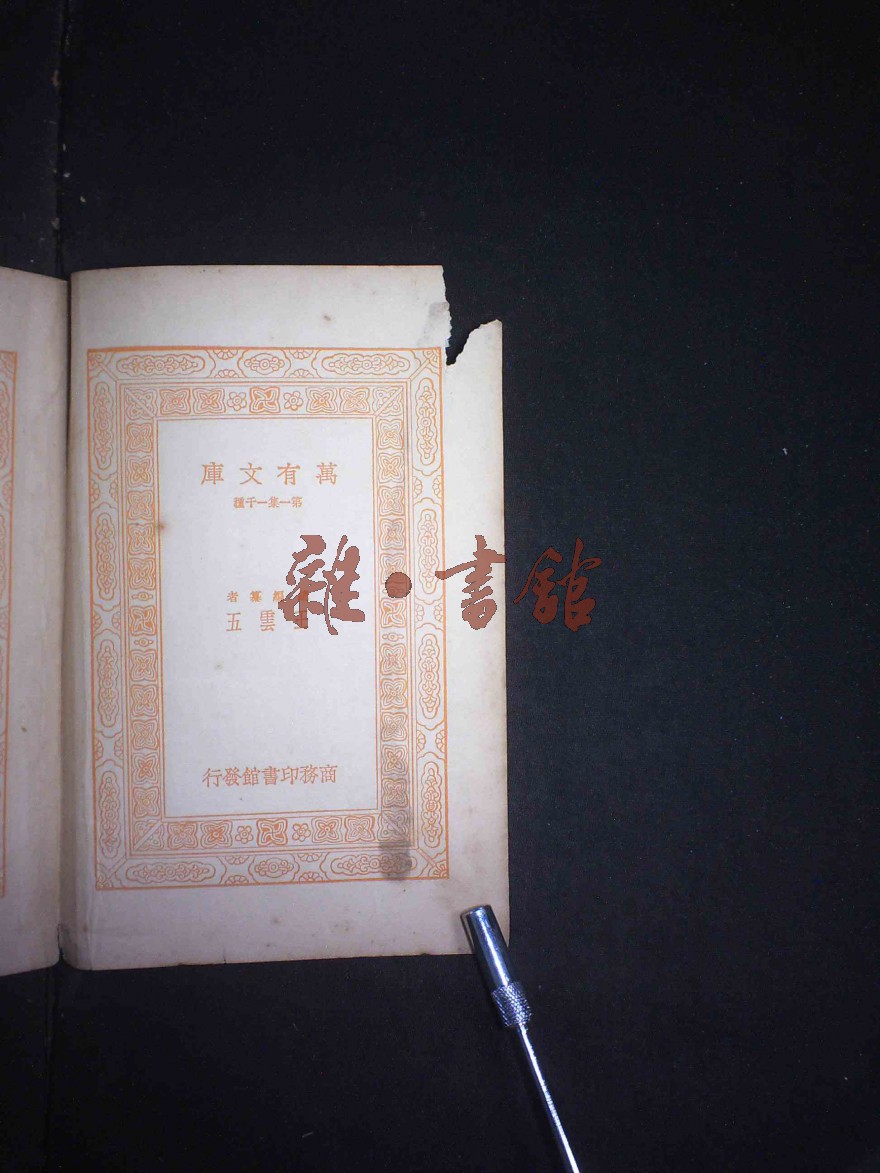 萬有文庫
第一集一千種
編纂者
王雲五
商務印書館發行
雜·書館